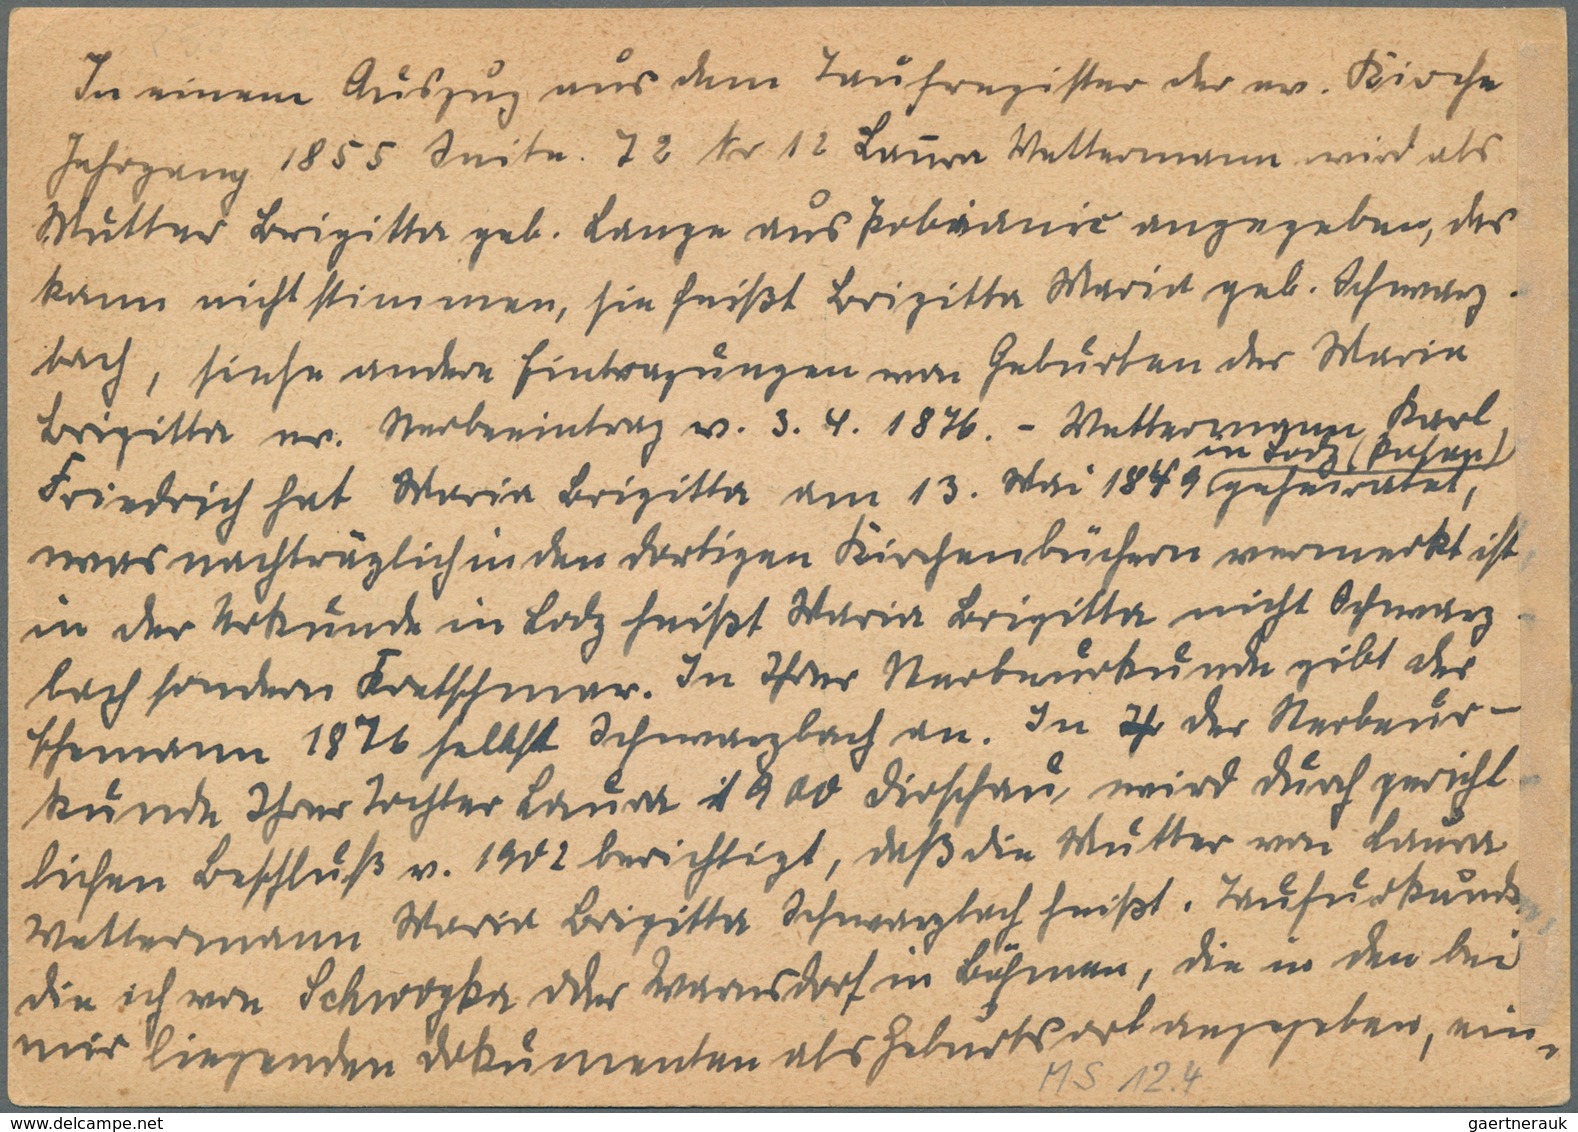 In einem Auszug aus dem Taufregister der ev. Kirche
Jahrgang 1855 Seite. 72 Nr 12 Laura Wettermann wird als
Mutter Brigitta geb. Lange aus Pobianic angegeben, das
kann nicht stimmen, sie heißt Brigitta Maria geb. Schwarz-
bach, siehe andere Eintragungen von Geburten der Maria
Brigitta ev. Sterbeeintrag v. 3. 4. 1876. - Wettermann, Karl
in Lodz (Posen)
Friedrich hat Maria Brigitta am 13. Mai 1849 geheiratet,
was nachträglich in den dortigen Kirchenbüchern vermerkt ist
in der Urkunde in Lodz heißt Maria Brigitta nicht Schwarz-
bach sondern Kretschmar. In Ihrer Sterbeurkunde gibt der
Ehemann 1876 selbst Schwarzbach an. In der Sterbeur-
kunde Ihrer Tochter Laura 1900 Dirschau, wird durch gericht-
lichen Beschluß v. 1902 berichtigt, daß die Mutter von Laura
Wettermann Maria Brigitta Schwarzbach heißt. Taufurkunde
die ich von oder Warnsdorf in Böhmen, die in den bei
mir liegenden Dokumenten als Geburtsort angegeben, ein-
MS 12.4
gaertnerauk